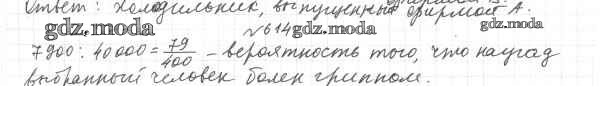 Ответ: Холодильник, выпущенный фирмой А.
gdz.moda
№614
gdz.moda
gdz.moda
7900 : 40000 = 79/400 – вероятность того, что наугад
выбранный человек болен гриппом.